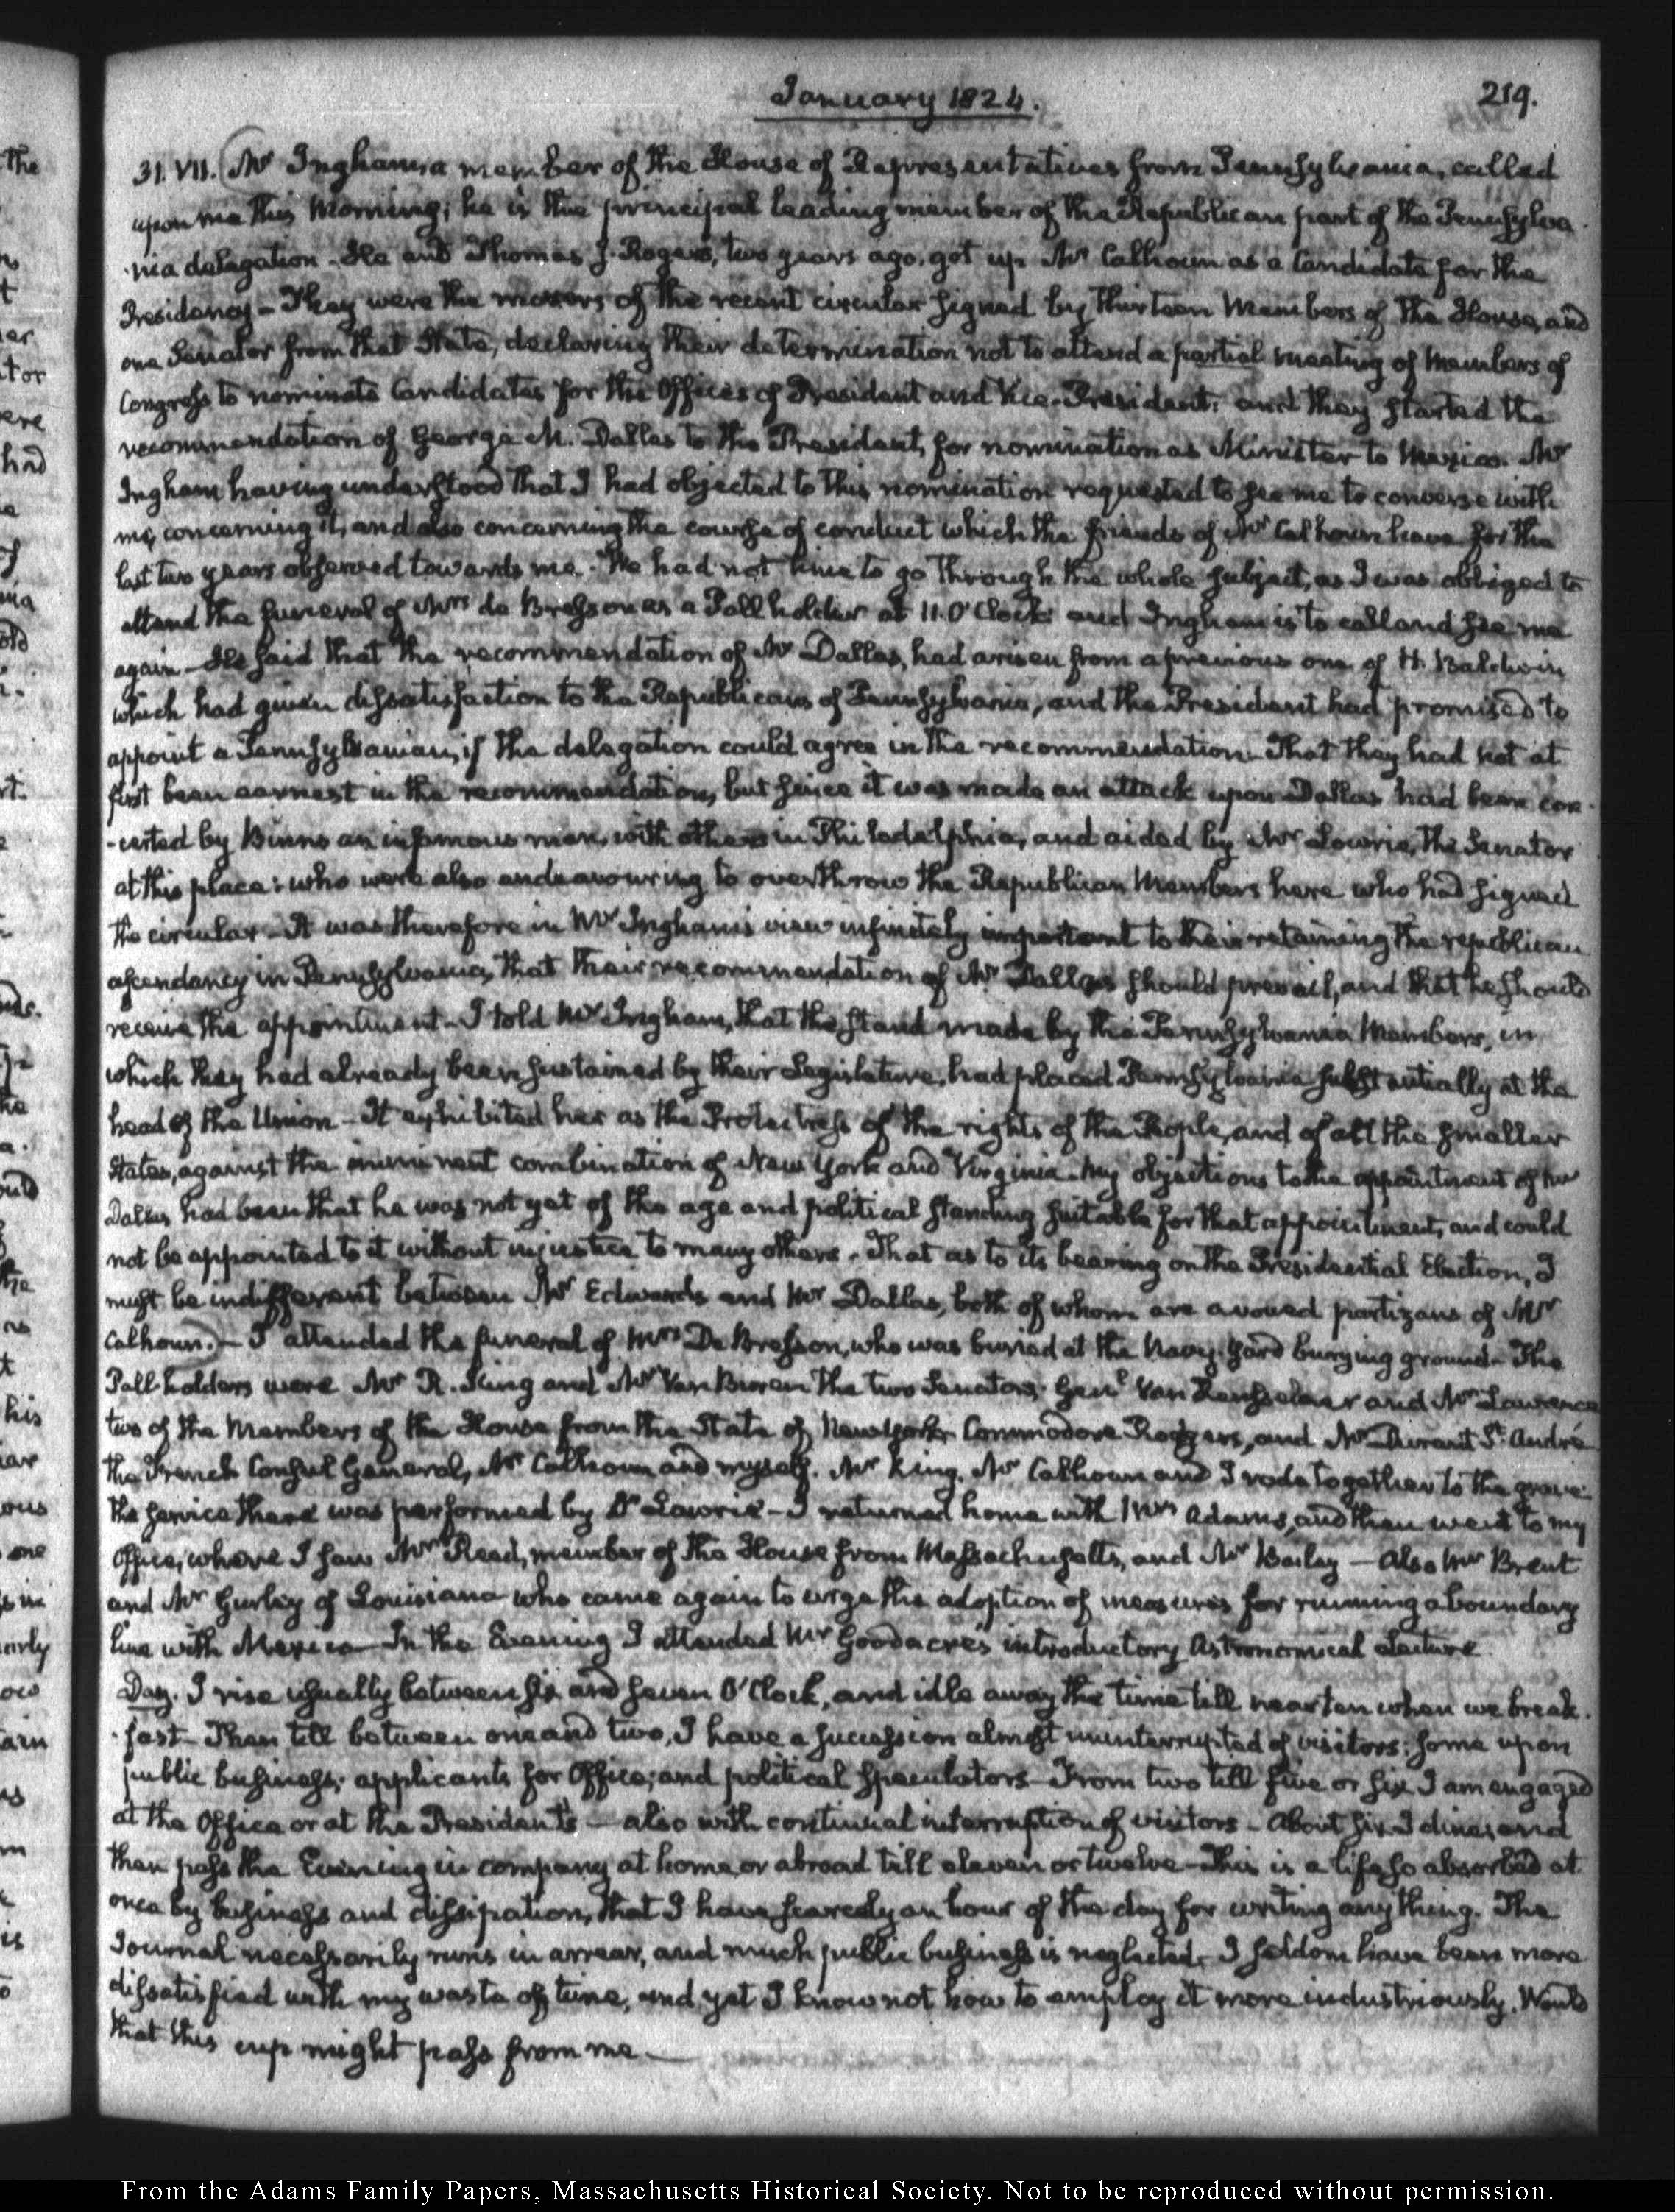 January 1824.
219.
31. VII. Mr Ingham a member of the House of Representatives from Pennsylvania, called
upon me this Morning; he is the principal leading member of the Republican part of the Pennsylva
-nia delegation. He and Thomas J. Rogers, two years ago, got up Mr Calhoun as a Candidate for the
Presidency - They were the movers of the recent circular signed by thirteen Members of the House, and
one Senator from that State, declaring their determination not to attend a partial meeting of Members of
Congress to nominate Candidates for the Offices of President and Vice-President: and they started the
recommendation of George M. Dallas to the President, for nomination as Minister to Mexico. Mr
Ingham having understood that I had objected to this nomination requested to see me to converse with
me, concerning it, and also concerning the course of conduct which the friends of Mr Calhoun have for the
last two years observed towards me. We had not time to go through the whole subject, as I was obliged to
attend the funeral of Mrs de Bresson as a Pall holder at 11. O'Clock and Ingham is to call and see me
again - He said that the recommendation of Mr Dallas, had arisen from a previous one of H. Baldwin
which had given dissatisfaction to the Republicans of Pennsylvania, and the President had promised to
appoint a Pennsylvanian, if the delegation could agree in the recommendation. That they had not at
first been earnest in the recommendation, but since it was made an attack upon Dallas had been con-
-certed by Binns an infamous man, with others in Philadelphia, and aided by Mr Lowrie, the Senator
at this place: who were also endeavouring to overthrow the Republican Members here who had signed
the circular - It was therefore in Mr Ingham's view infinitely important to their retaining the republican
ascendancy in Pennsylvania, that their recommendation of Mr Dallas should prevail, and that he should
receive the appointment - I told Mr Ingham, that the stand made by the Pennsylvania Members, in
which they had already been sustained by their Legislature, had placed Pennsylvania substantially at the
head of the Union - It exhibited her as the Protectress of the rights of the People, and of all the smaller
States, against the imminent combination of New York and Virginia. My objections to the appointment of Mr
Dallas had been that he was not yet of the age and political standing suitable for that appointment, and could
not be appointed to it without injustice to many others. That as to its bearing on the Presidential Election, I
must be indifferent between Mr Edwards and Mr Dallas, both of whom are avowed partizans of Mr
Calhoun. - I attended the funeral of Mrs De Bresson, who was buried at the Navy-Yard burying ground. The
Pall-holders were Mr R. King and Mr Van Buren the two Senators; Genl Van Rensselaer and Mr Lawrence
two of the Members of the House from the State of New York; Commodore Rodgers, and Mr Durant St. André
the French Consul General, Mr Calhoun and myself. Mr King, Mr Calhoun and I rode together to the grave.
the service there was performed by Dr Lawrie - I returned home with Mrs Adams, and then went to my
Office, where I saw Mr Read, member of the House from Massachusetts, and Mr Bailey — Also Mr Brent
and Mr Gurley of Louisiana who came again to urge the adoption of measures for running a boundary
line with Mexico - In the Evening I attended Mr Goodacre's introductory Astronomical Lecture
Day. I rise usually between six and seven O'Clock, and idle away the time till near ten when we break-
-fast - Then till between one and two, I have a succession almost uninterrupted of visitors; some upon
public business; applicants for Office; and political speculators - From two till five or six I am engaged
at the Office or at the President's — also with continual interruption of visitors - About six I dine; and
then pass the Evening in company at home or abroad till eleven or twelve - This is a life so absorbed at
once by business and dissipation, that I have scarcely an hour of the day for writing anything. The
Journal necessarily runs in arrear, and much public business is neglected. I seldom have been more
dissatisfied with my waste of time, and yet I know not how to employ it more industriously. Would
that this cup might pass from me —
From the Adams Family Papers, Massachusetts Historical Society. Not to be reproduced without permission.